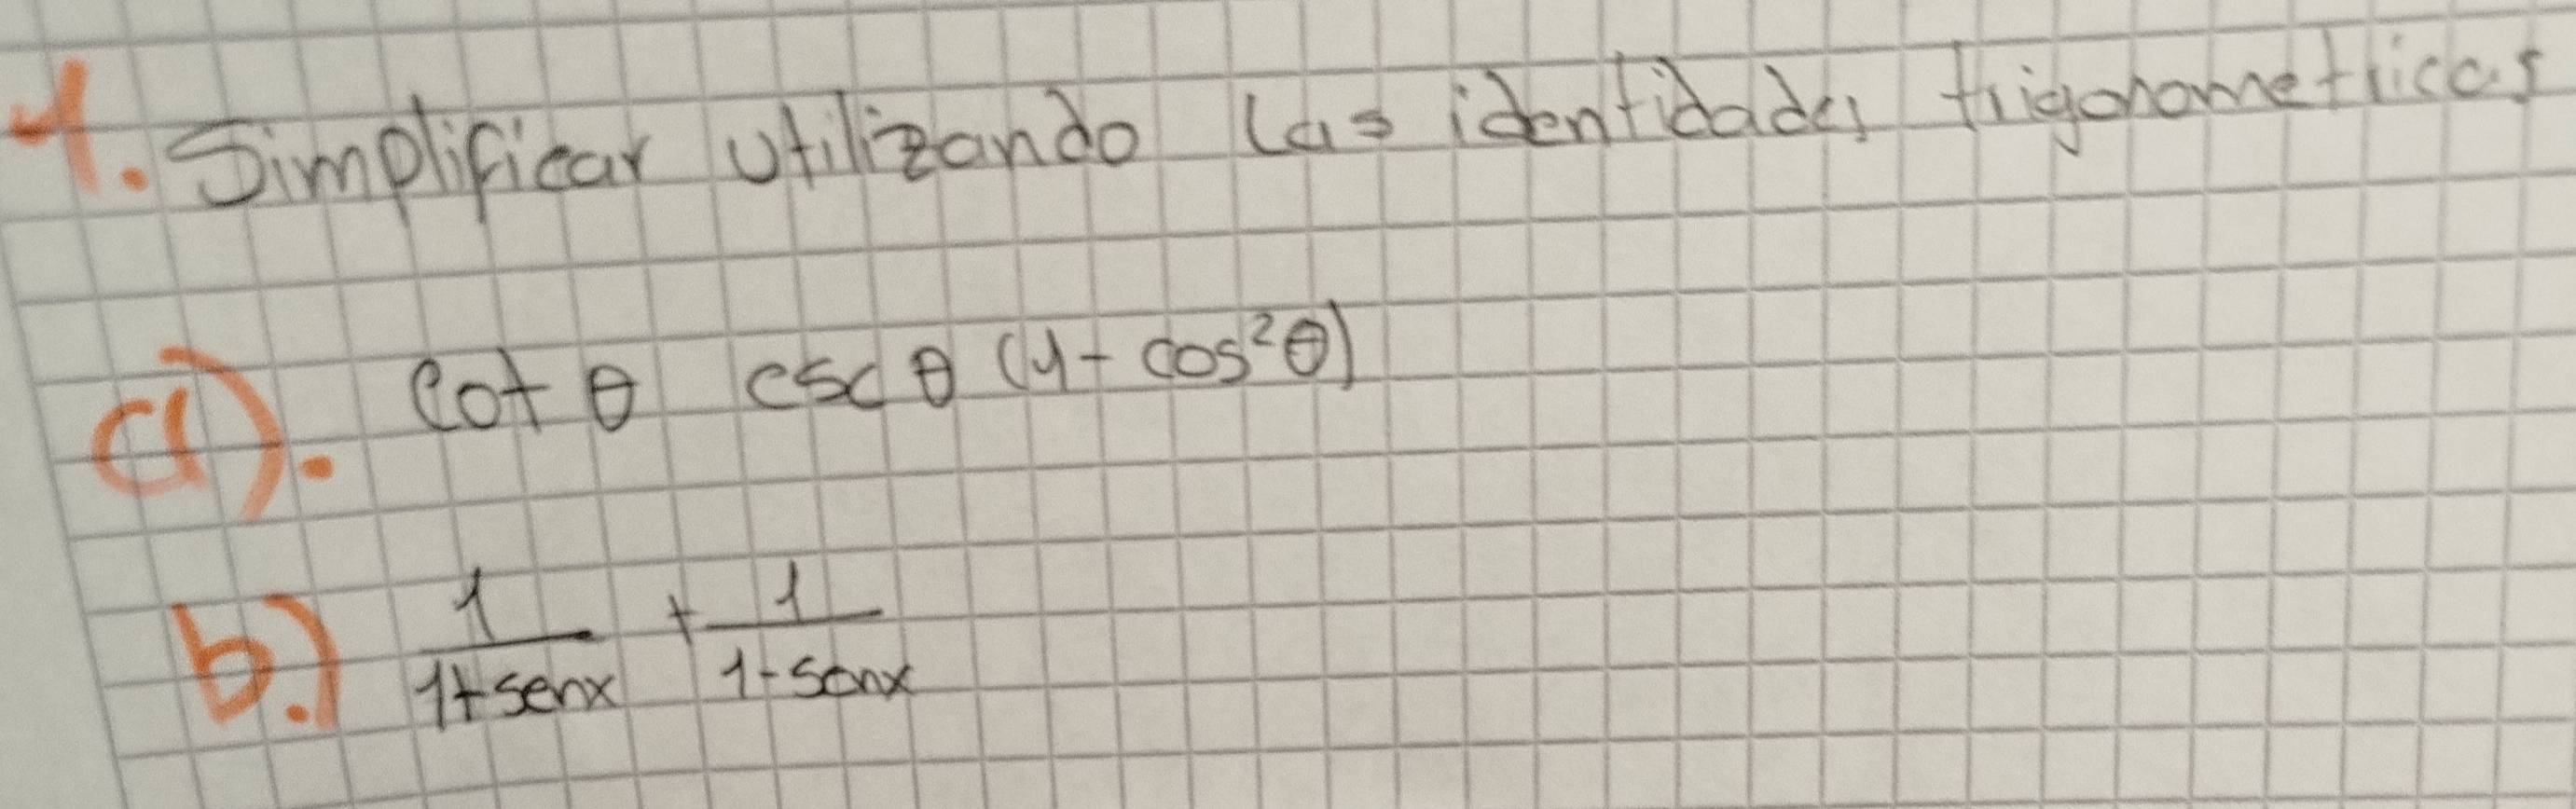 1. Simplificar utilizando las identidades trigonometricas
a). cot θ csc θ (1 - cos²θ)
b.) 1/(1+senx) + 1/(1-senx)